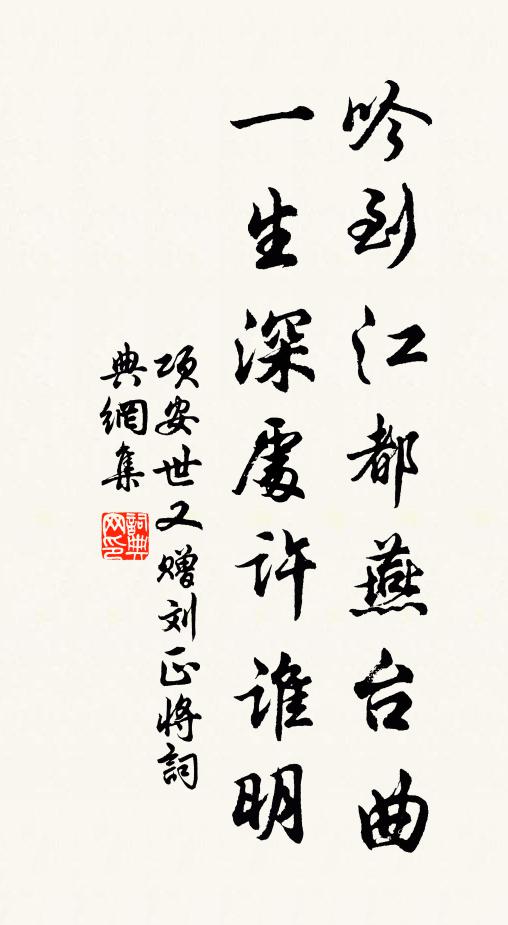 吟到江都燕台曲
一生深處许誰明
项安世又赠刘正將詞
典網集
詞典
网印